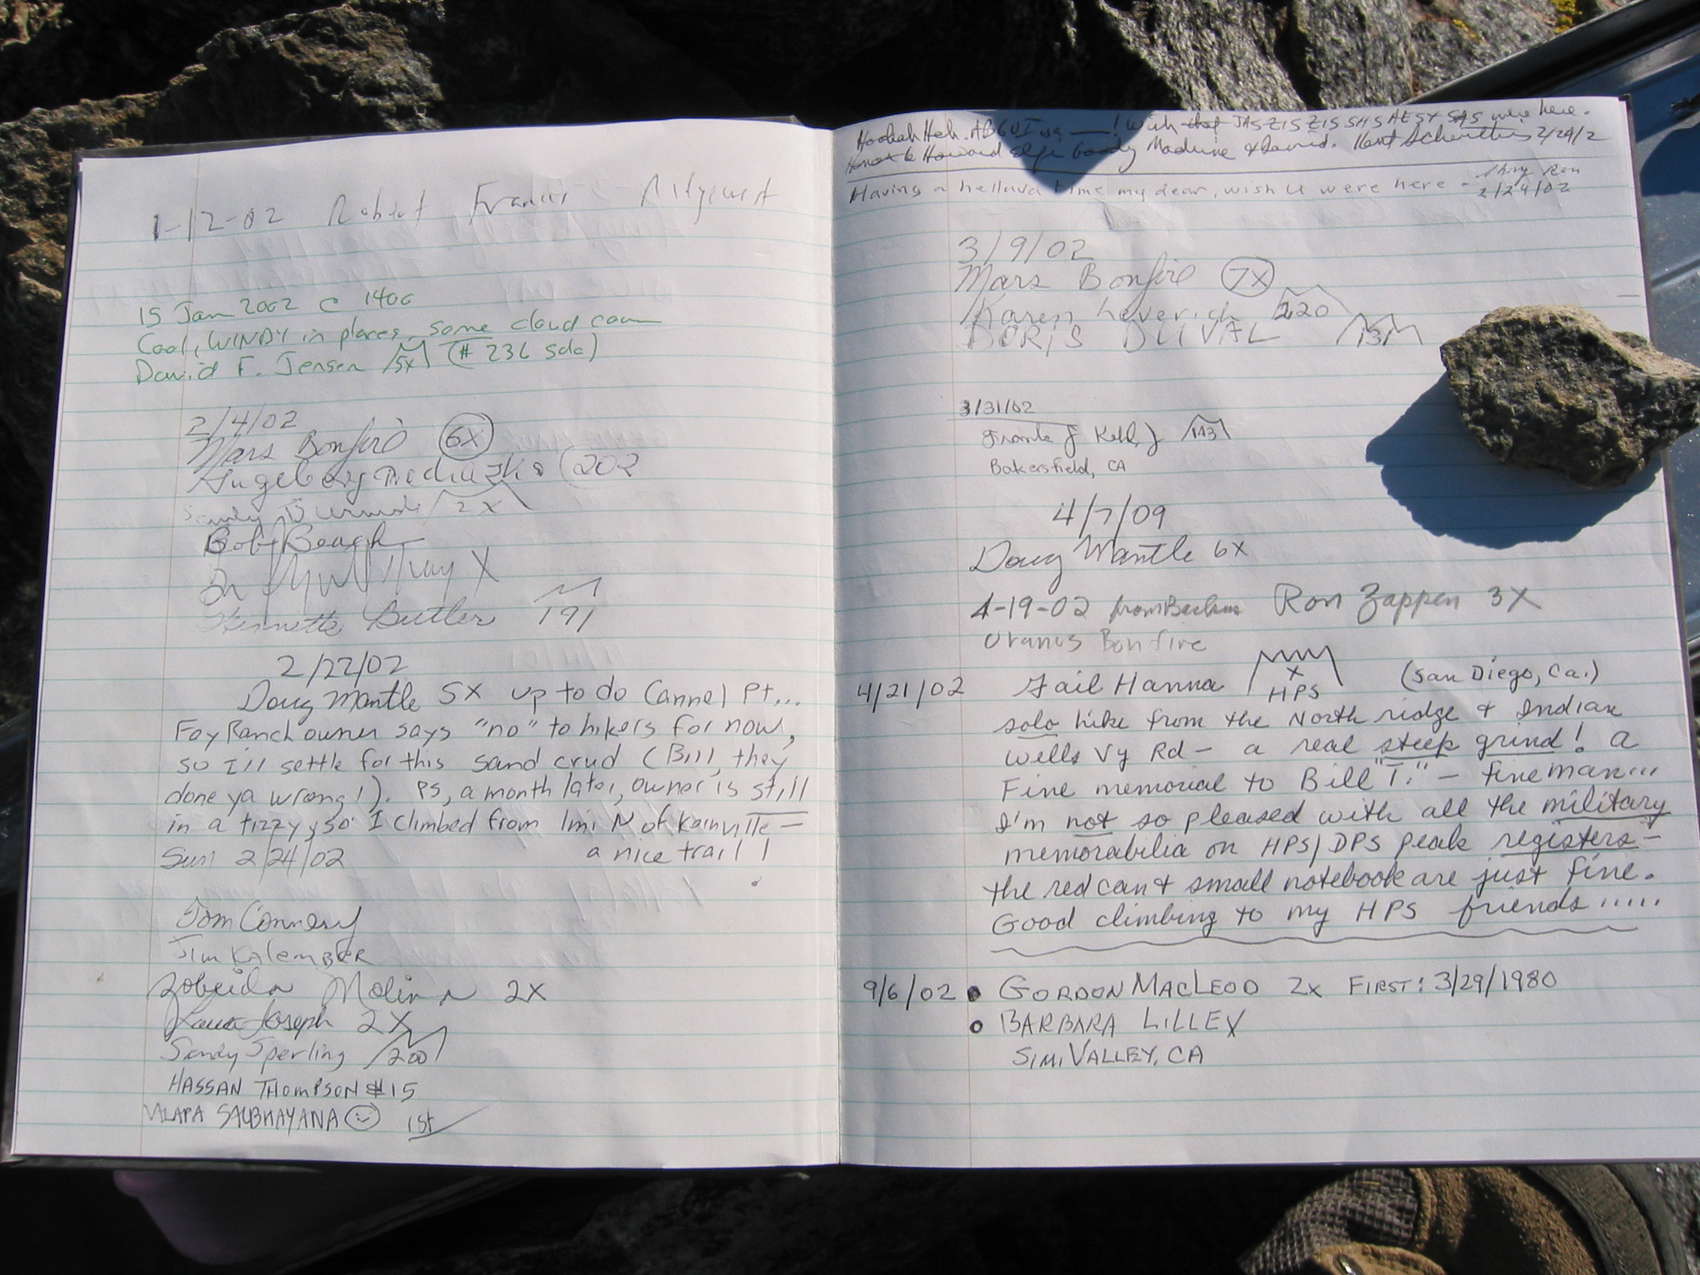 1-12-02 Robert Ridgecrest
15 Jan 2002 @ 1400
Cool, WINDY in places, some cloud
David F. Jensen 5x (# 236 solo)
2/4/02
Mars Bonfire 6x
202
Sandy 2x
Bob Beach
X
Butler 191
2/22/02
Doug Mantle 5x up to do Cannel Pt...
Fay Ranch owner says "no" to hikers for now,
so I'll settle for this sand crud (Bill, they
done ya wrong!). PS, a month later, owner is still
in a tizzy, so I climbed from 1mi N of Kernville –
Sun 2/24/02 a nice trail!
Tom Connery
Jim Kalember
Zobeida Molina 2x
Laura Joseph 2x
Sandy Sperling 200
HASSAN THOMPSON #15
SALBHAYANA 1st
were here.
Howard Goody 2/24/2
Having a helluva time my dear, wish u were here –
2/24/02
3/9/02
Mars Bonfire 7x
Karen Leverich 220
BORIS DUVAL 131
3/31/02
Frank J Kelly 143
Bakersfield, CA
4/7/09
Doug Mantle 6x
4-19-02 from Ron Zappen 3X
Uranus Bonfire
4/21/02 Gail Hanna X HPS (San Diego, Ca.)
solo hike from the North ridge & Indian
Wells Vy Rd – a real steep grind! A
Fine memorial to Bill "T." – fine man...
I'm not so pleased with all the military
memorabilia on HPS/DPS peak registers –
the red can & small notebook are just fine.
Good climbing to my HPS friends.....
9/6/02 • GORDON MACLEOD 2x FIRST: 3/29/1980
o BARBARA LILLEY
SIMI VALLEY, CA